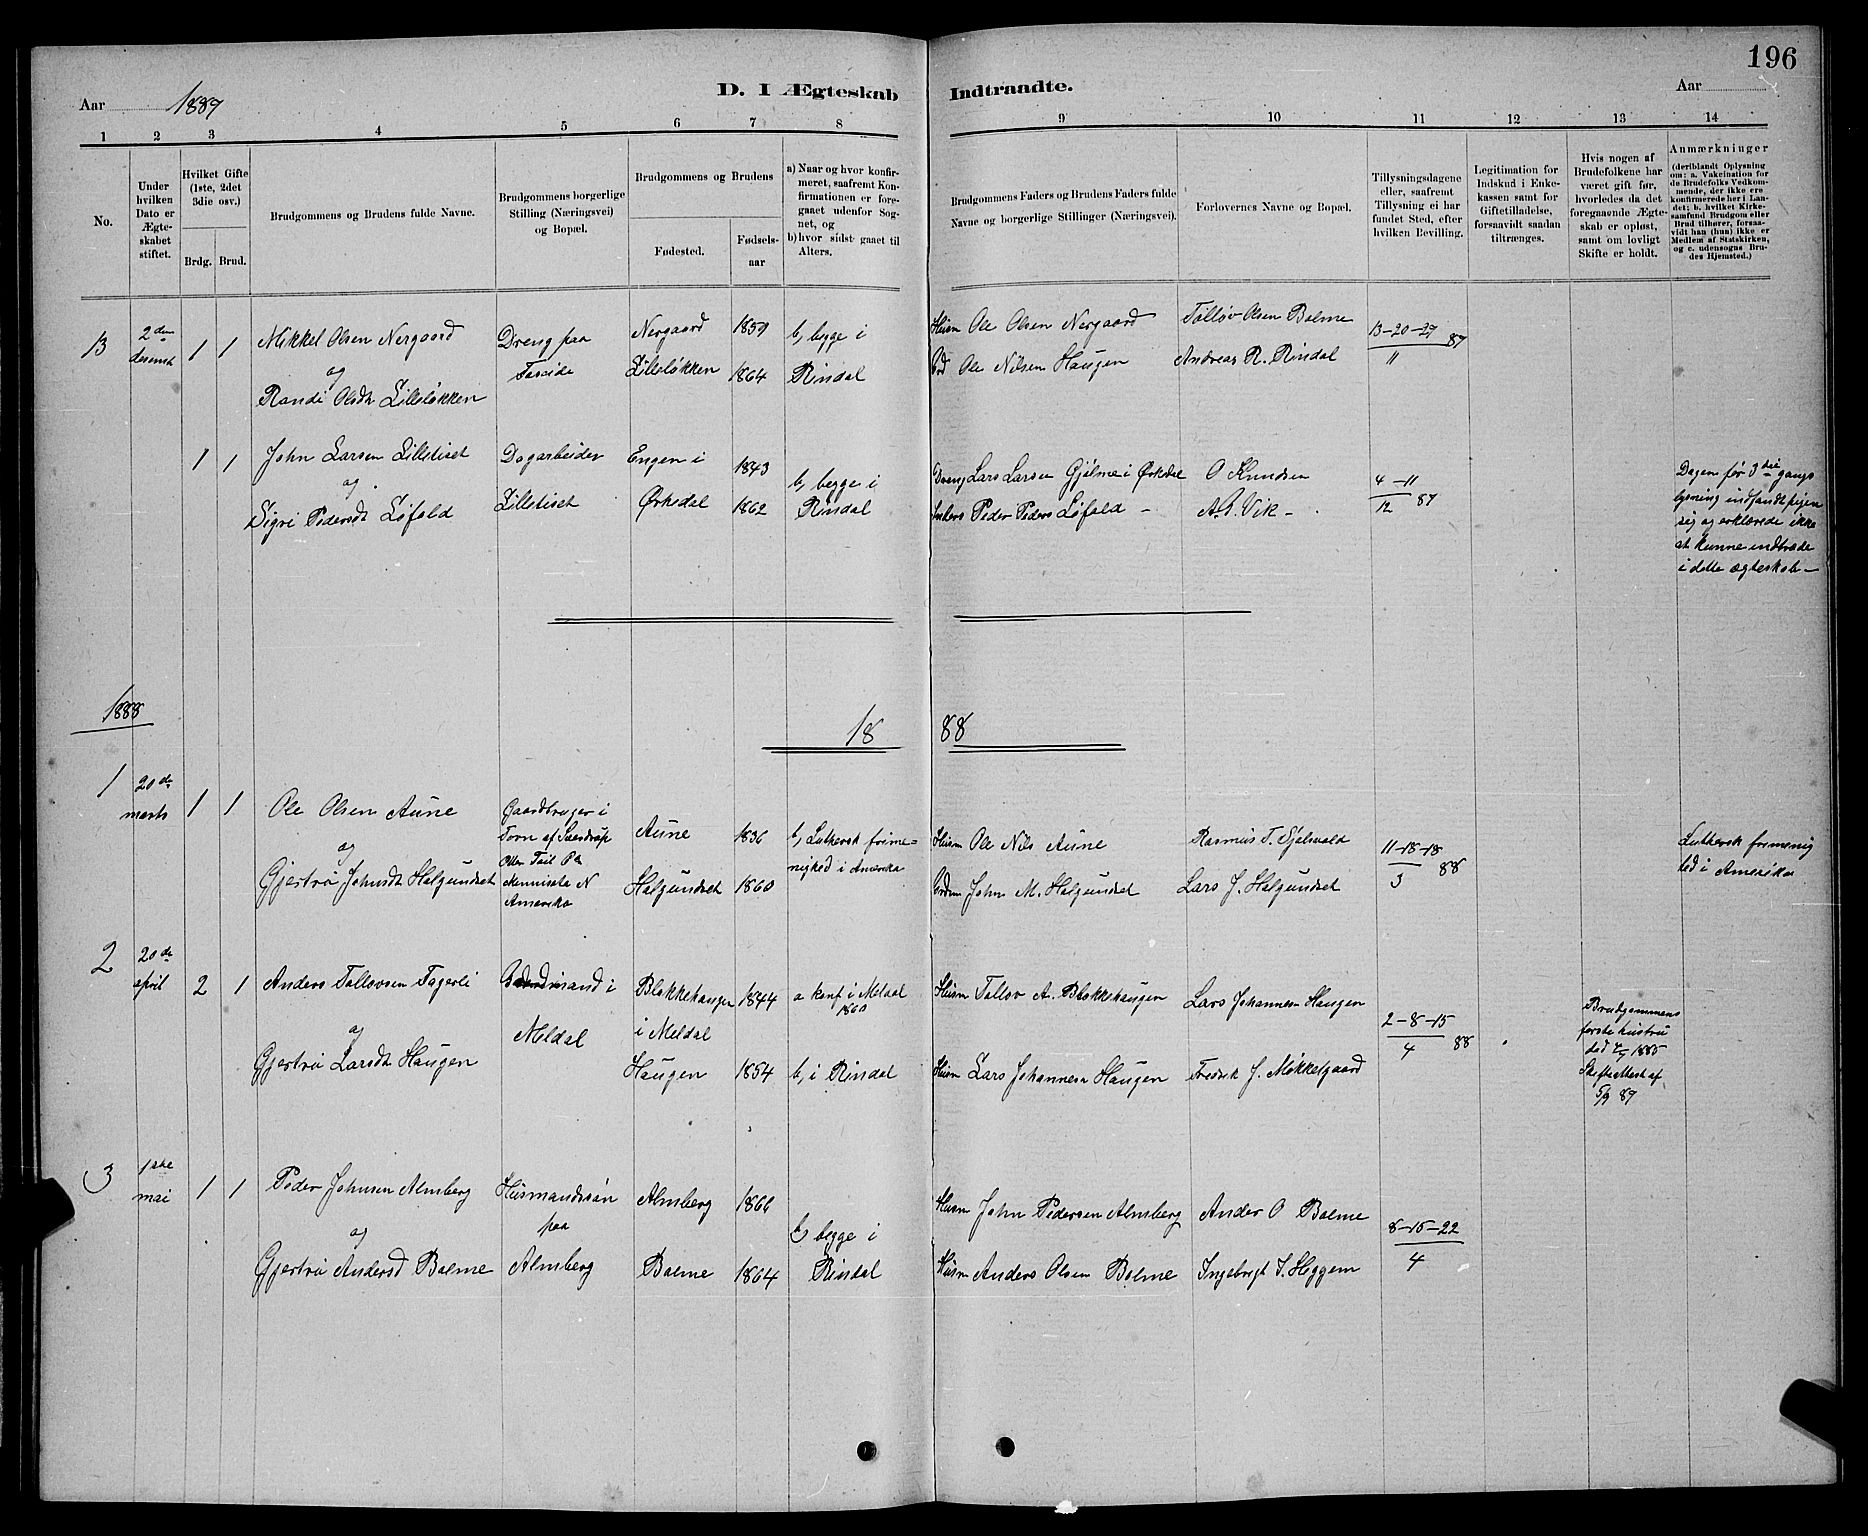 196
Aar 1887
D. I Ægteskab Indtraadte.
Aar
1 2 3 4 5 6 7 8 9 10 11 12 13 14
No.
Under hvilken Dato er Ægteskabet stiftet.
Hvilket Gifte (1ste, 2det 3die osv.)
Brdg. Brud.
Brudgommens og Brudens fulde Navne.
Brudgommens borgerlige Stilling (Næringsvei) og Bopæl.
Brudgommens og Brudens
Fødested.
Fødselsaar
a) Naar og hvor konfirmeret, saafremt Konfirmationen er foregaaet udenfor Sognet, og
b) hvor sidst gaaet til Alters.
Brudgommens Faders og Brudens Faders fulde Navne og borgerlige Stillinger (Næringsvei).
Forlovernes Navne og Bopæl.
Tillysningsdagene eller, saafremt Tillysning ei har fundet Sted, efter hvilken Bevilling.
Legitimation for Indskud i Enkekassen samt for Giftetilladelse, forsaavidt saadan tiltrænges.
Hvis nogen af Brudefolkene har været gift før, hvorledes da det foregaaende Ægteskab er opløst, samt om lovligt Skifte er holdt.
Anmærkninger
(deriblandt Oplysning om: a. Vakcination for de Brudefolks Vedkommende, der ikke ere konfirmerede her i Landet; b. hvilket Kirkesamfund Brudgom eller Brud tilhører, forsaavidt han (hun) ikke er Medlem af Statskirken, og c. udensogns Brudes Hjemsted.)
13 2den desemb 1 1
Mikkel Olsen Nergaard
og
Randi Olsdt Lilleløkken
Dreng paa
Nergaard 1859
Lilleløkken 1864
b, begge i Rindal
Husm Ole Olsen Nergaard
Ole Nilsen Haugen
Tølløv Olsen Bolme
Andreas R. Rindal
13-20-27
11 87
1 1
John Larsen Lilletiset
og
Sigri Pedersdt Løfald
Dagarbeider
Lilletiset
Engen i 1843
Ørkedal 1862
b, begge i Rindal
Lars Larsen Gjølme i Ørkdal
Peder Peders Løfald -
O Knudsen
A. E. Vik -
4-11
12 87
Dagen før 3die gangs
lysning indfandt pigen
sig og erklærede ikke
at kunne indtræde
i dette ægteskab -
1888
18 88
1 20de marts 1 1
Ole Olsen Aune
og
Gjertrø Johnsdt Halgundset
Gaardbruger i
Torn af
Otter Tail Co
Mennisota N
Amerika
Aune 1836
Halgundset 1860
b, Luthersk frime=
nighed i Amerika
Husm Ole Nils Aune
Grdm John M. Halgundset
Rasmus T. Sjølsvold
Lars J. Halgundset
11-18-18
3 88
Luthersk frimenig
hed i Amerika
2 20de april 2 1
Anders Tollovsen Fagerli
og
Gjertrø Larsdt Haugen
Gaardmand i
Meldal
Blokkehaugen 1844
i Meldal
Haugen 1854
a konf i Meldal
1860
b, i Rindal
Husm Tollov A. Blokkehaugen
Husm Lars Johannesn Haugen
Lars Johannesn Haugen
Fredrik J. Møkkelgaard
2-8-15
4 88
Brudgommens
første hustru
død 1885
Skifteattest af
5/9 87
3 1ste mai 1 1
Peder Johnsen Almberg
og
Gjertrø Andersd Bolme
Husmandssøn
paa
Almberg
Almberg 1866
Bolme 1864
b, begge i
Rindal
Husm John Pedersen Almberg
Husm Anders Olsen Bolme
Ander O Bolme
Ingebregt I. Heggem
8-15-22
4